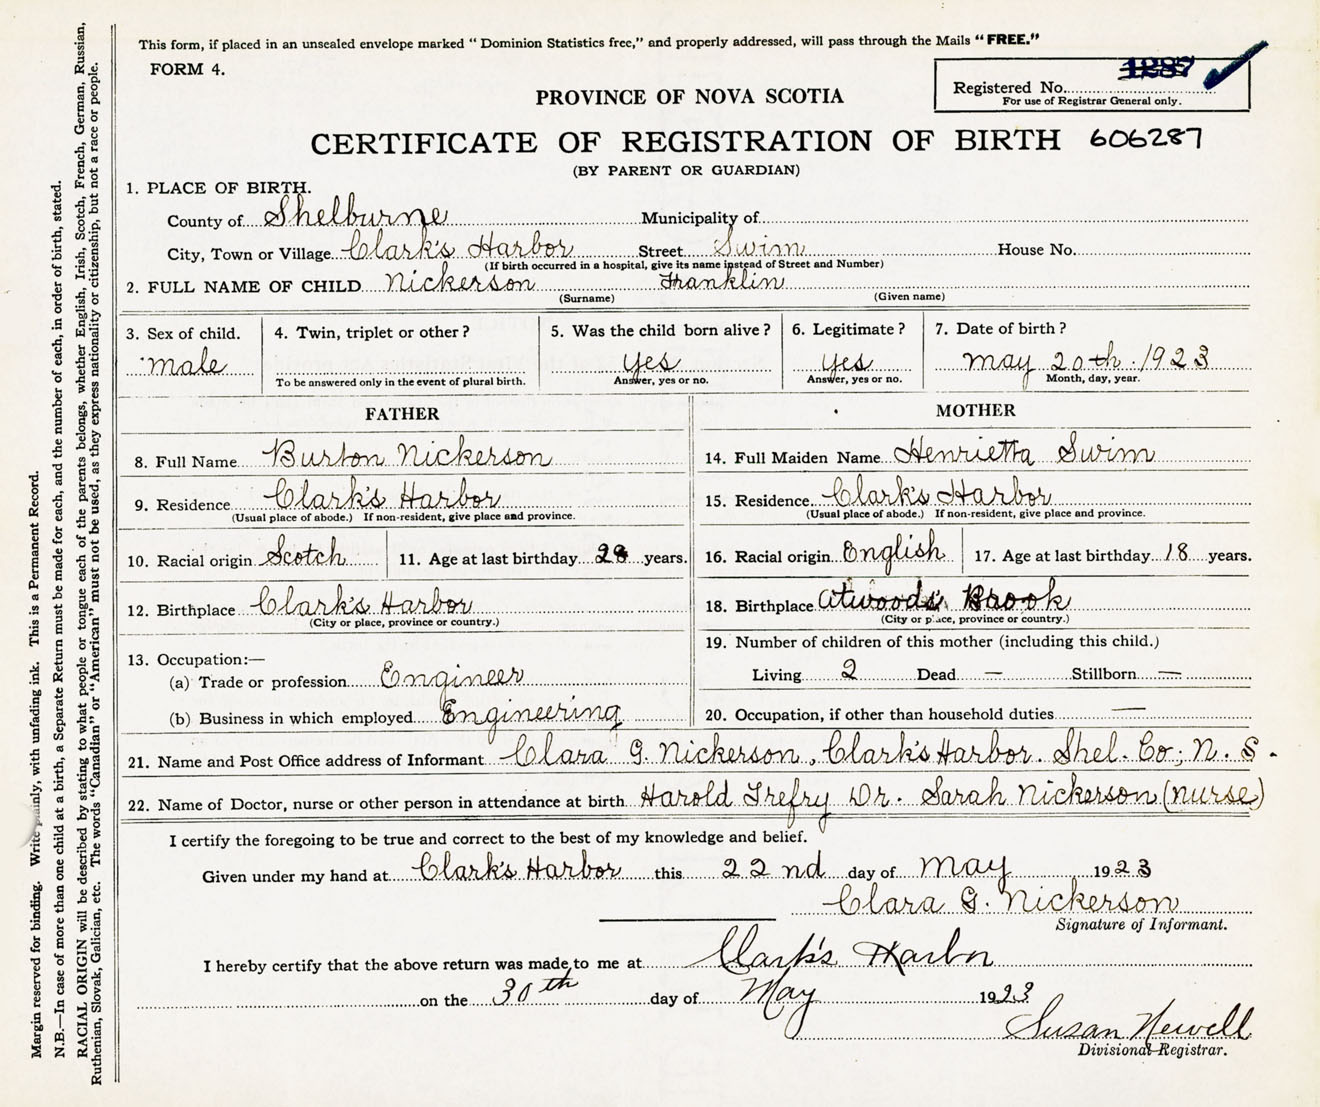 This form, if placed in an unsealed envelope marked "Dominion Statistics free," and properly addressed, will pass through the Mails "FREE."
FORM 4.
Registered No. 1287
For use of Registrar General only.
PROVINCE OF NOVA SCOTIA
CERTIFICATE OF REGISTRATION OF BIRTH 606287
(BY PARENT OR GUARDIAN)
1. PLACE OF BIRTH.
County of Shelburne Municipality of
City, Town or Village Clark's Harbor Street Swim House No.
(If birth occurred in a hospital, give its name instead of Street and Number)
2. FULL NAME OF CHILD Nickerson Franklin
(Surname) (Given name)
3. Sex of child. 4. Twin, triplet or other? 5. Was the child born alive? 6. Legitimate? 7. Date of birth?
male yes yes may 20th. 1923
To be answered only in the event of plural birth. Answer, yes or no. Answer, yes or no. Month, day, year.
FATHER
8. Full Name Burton Nickerson
9. Residence Clark's Harbor
(Usual place of abode.) If non-resident, give place and province.
10. Racial origin Scotch 11. Age at last birthday 28 years.
12. Birthplace Clark's Harbor
(City or place, province or country.)
13. Occupation:—
(a) Trade or profession Engineer
(b) Business in which employed Engineering
MOTHER
14. Full Maiden Name Henrietta Swim
15. Residence Clark's Harbor
(Usual place of abode.) If non-resident, give place and province.
16. Racial origin English 17. Age at last birthday 18 years.
18. Birthplace Atwood's Brook
(City or place, province or country.)
19. Number of children of this mother (including this child.)
Living 2 Dead — Stillborn —
20. Occupation, if other than household duties —
21. Name and Post Office address of Informant Clara G. Nickerson, Clark's Harbor. Shel. Co; N. S.
22. Name of Doctor, nurse or other person in attendance at birth Harold Trefry Dr. Sarah Nickerson (nurse)
I certify the foregoing to be true and correct to the best of my knowledge and belief.
Given under my hand at Clark's Harbor this 22 nd day of May 1923
Clara G. Nickerson
Signature of Informant.
I hereby certify that the above return was made to me at Clark's Harbor
on the 30th day of May 1923
Susan Newell
Divisional Registrar.
Margin reserved for binding. Write plainly, with unfading ink. This is a Permanent Record.
N.B.—In case of more than one child at a birth, a Separate Return must be made for each, and the number of each, in order of birth, stated.
RACIAL ORIGIN will be described by stating to what people or tongue each of the parents belongs, whether English, Irish, Scotch, French, German, Russian,
Ruthenian, Slovak, Galician, etc. The words "Canadian" or "American" must not be used, as they express nationality or citizenship, but not a race or people.